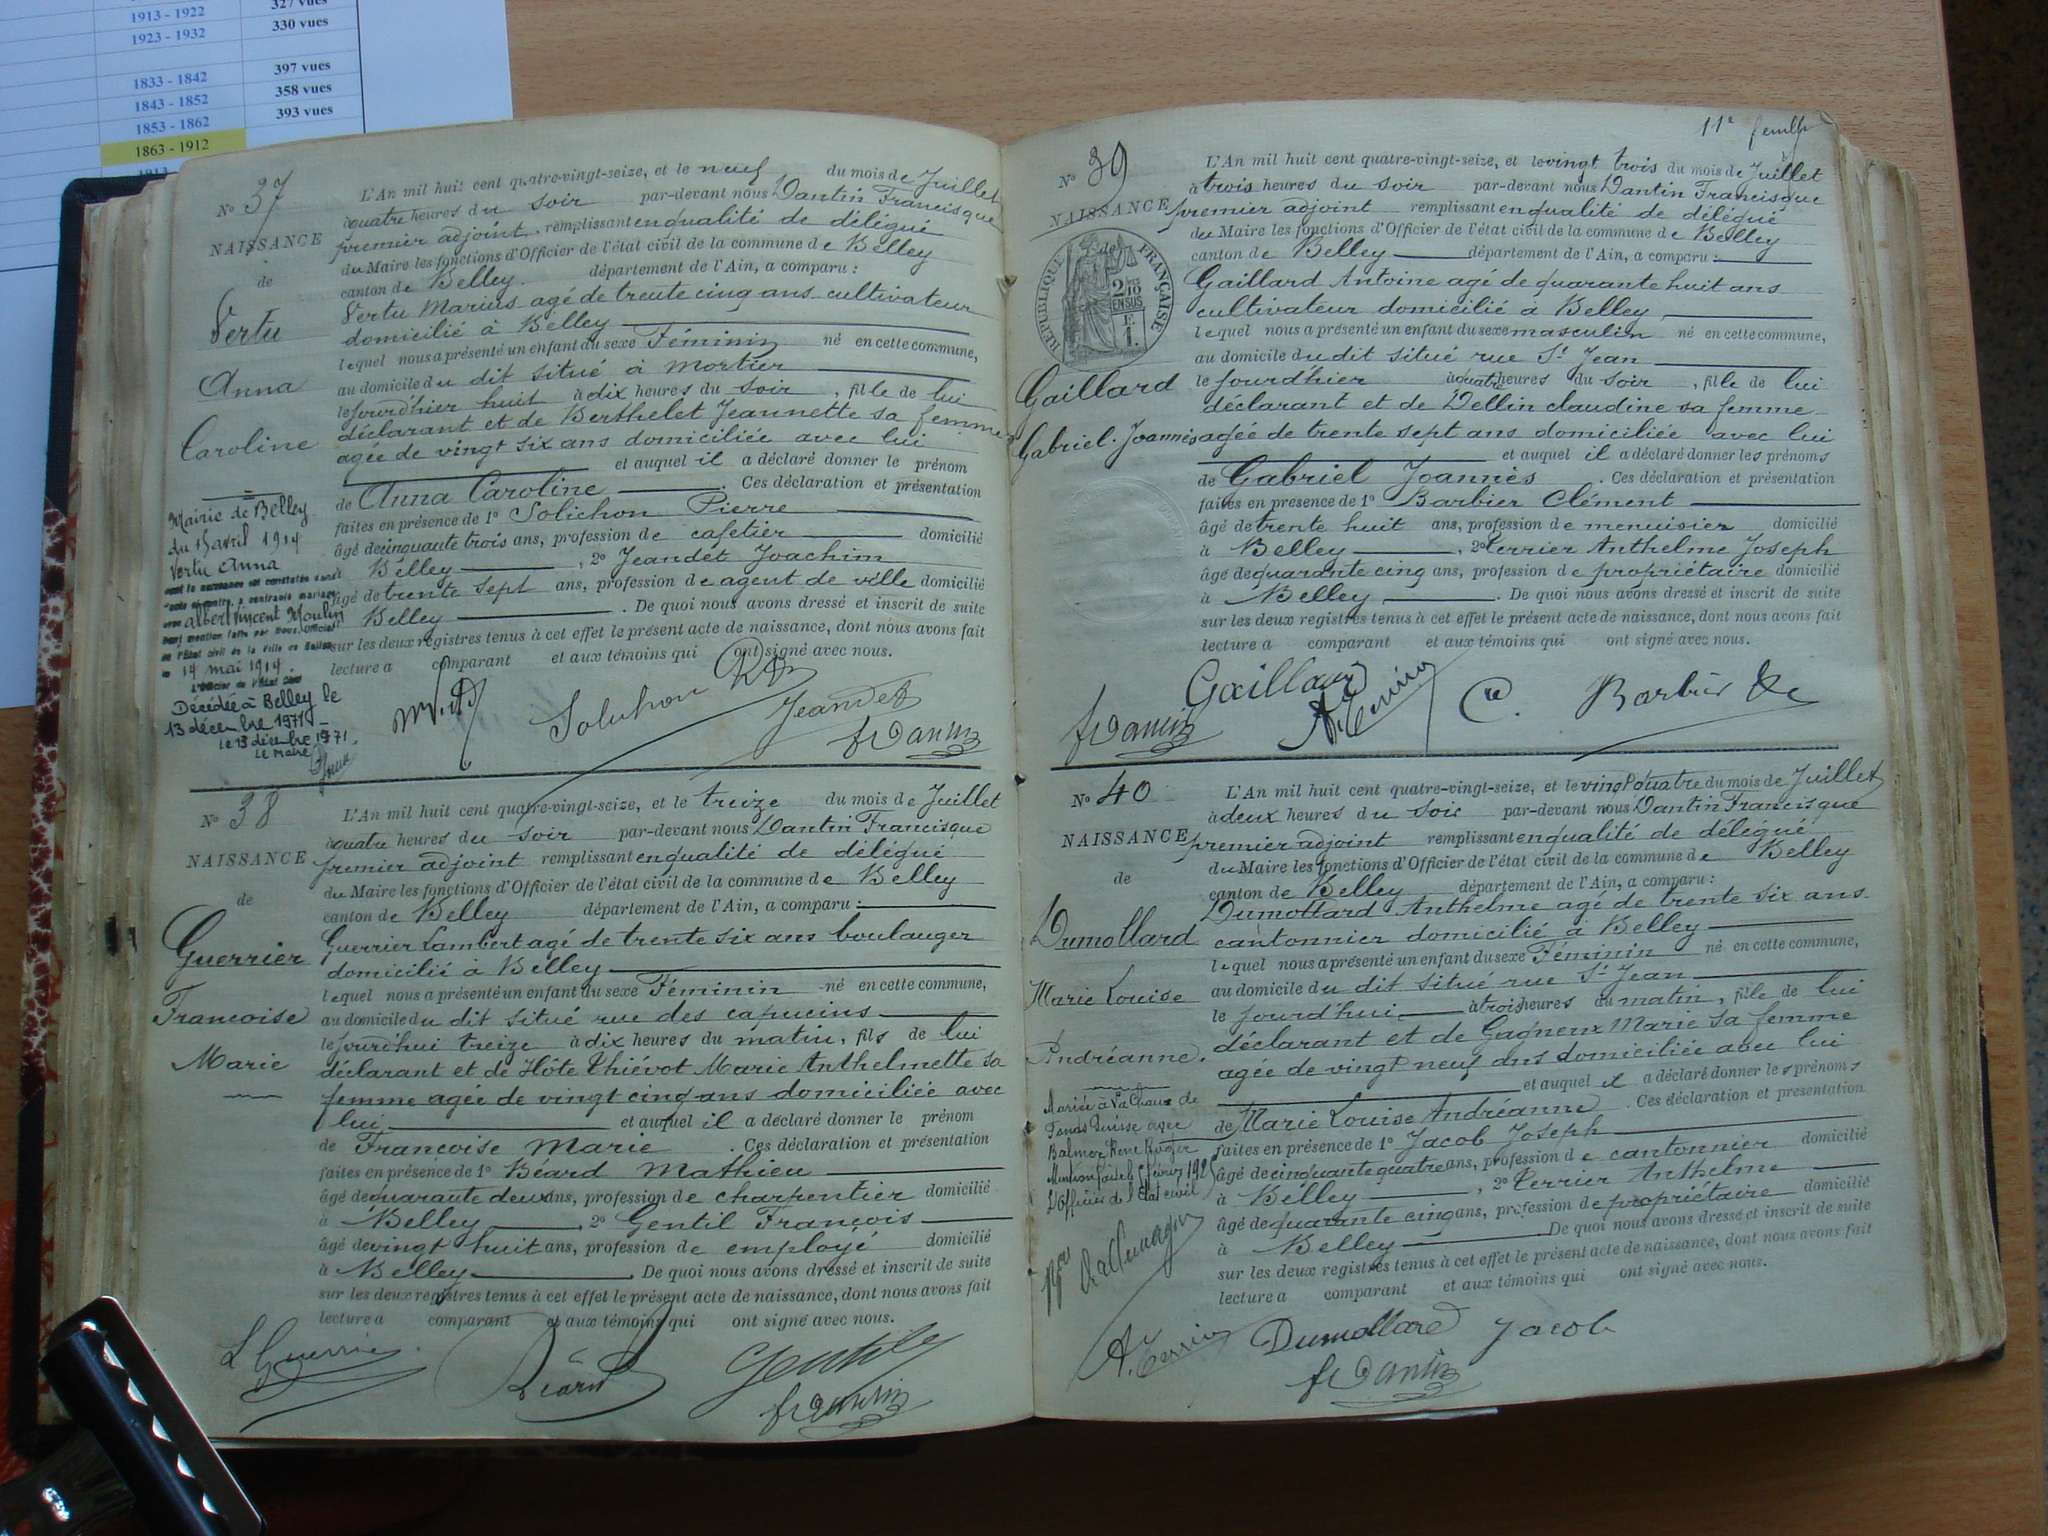 1913 - 1922 327 vues
1923 - 1932 330 vues
1833 - 1842 397 vues
1843 - 1852 358 vues
1853 - 1862 393 vues
1863 - 1912
1913
N° 37
NAISSANCE
de
Vertu
Anna
Caroline
Mairie de Belley
du 15 avril 1914
Vertu Anna
avec Albert Vincent Moulin
14 mai 1914.
Décédée à Belley le
13 décembre 1971
Le 13 décembre 1971
Le Maire
L'An mil huit cent quatre-vingt-seize, et le neuf du mois de Juillet
à quatre heures du soir par-devant nous Dantin Francisque
premier adjoint, remplissant en qualité de délégué
du Maire les fonctions d'Officier de l'état civil de la commune de Belley
canton de Belley département de l'Ain, a comparu :
Vertu Marius agé de trente cinq ans cultivateur
domicilié à Belley
lequel nous a présenté un enfant du sexe Féminin né en cette commune,
au domicile du dit situé à Mortier
le jourd'hier huit à dix heures du soir, fille de lui
déclarant et de Berthelet Jeannette sa femme
agée de vingt six ans domiciliée avec lui
et auquel il a déclaré donner le prénom
de Anna Caroline. Ces déclaration et présentation
faites en présence de 1° Solichon Pierre
âgé de cinquante trois ans, profession de cafetier domicilié
à Belley, 2° Jeandet Joachim
âgé de trente sept ans, profession de agent de ville domicilié
à Belley. De quoi nous avons dressé et inscrit de suite
sur les deux registres tenus à cet effet le présent acte de naissance, dont nous avons fait
lecture a comparant et aux témoins qui ont signé avec nous.
Solichon Jeandet
fr Dantin
N° 38
NAISSANCE
de
Guerrier
Francoise
Marie
L'An mil huit cent quatre-vingt-seize, et le treize du mois de Juillet
à quatre heures du soir par-devant nous Dantin Francisque
premier adjoint remplissant en qualité de délégué
du Maire les fonctions d'Officier de l'état civil de la commune de Belley
canton de Belley département de l'Ain, a comparu :
Guerrier Lambert agé de trente six ans boulanger
domicilié à Belley
lequel nous a présenté un enfant du sexe Féminin né en cette commune,
au domicile du dit situé rue des capucins
le jourd'hui treize à dix heures du matin, fils de lui
déclarant et de Hôte Thiévot Marie Anthelmette sa
femme agée de vingt cinq ans domiciliée avec
lui et auquel il a déclaré donner le prénom
de Francoise Marie. Ces déclaration et présentation
faites en présence de 1° Béard Mathieu
âgé de quarante deux ans, profession de charpentier domicilié
à Belley, 2° Gentil François
âgé de vingt huit ans, profession de employé domicilié
à Belley. De quoi nous avons dressé et inscrit de suite
sur les deux registres tenus à cet effet le présent acte de naissance, dont nous avons fait
lecture a comparant et aux témoins qui ont signé avec nous.
L Guerrier Béard Gentil
fr Dantin
11e feuille
N° 39
NAISSANCE
de
RÉPUBLIQUE FRANÇAISE
2/10 EN SUS
F. 1.
Gaillard
Gabriel. Joannès
L'An mil huit cent quatre-vingt-seize, et le vingt trois du mois de Juillet
à trois heures du soir par-devant nous Dantin Francisque
premier adjoint remplissant en qualité de délégué
du Maire les fonctions d'Officier de l'état civil de la commune de Belley
canton de Belley département de l'Ain, a comparu :
Gaillard Antoine agé de quarante huit ans
cultivateur domicilié à Belley
lequel nous a présenté un enfant du sexe masculin né en cette commune,
au domicile du dit situé rue St Jean
le jourd'hier à quatre heures du soir, fils de lui
déclarant et de Dellin claudine sa femme
agée de trente sept ans domiciliée avec lui
et auquel il a déclaré donner les prénoms
de Gabriel Joannès. Ces déclaration et présentation
faites en présence de 1° Barbier Clément
âgé de trente huit ans, profession de menuisier domicilié
à Belley, 2° Terrier Anthelme Joseph
âgé de quarante cinq ans, profession de propriétaire domicilié
à Belley. De quoi nous avons dressé et inscrit de suite
sur les deux registres tenus à cet effet le présent acte de naissance, dont nous avons fait
lecture a comparant et aux témoins qui ont signé avec nous.
Gaillard
fr Dantin A. Terrier C. Barbier
N° 40
NAISSANCE
de
Dumollard
Marie Louise
Andréanne.
Mariée à La Chaux de
Fonds Suisse avec
Balmer René Roger
L'Officier de l'Etat civil
L'An mil huit cent quatre-vingt-seize, et le vingt quatre du mois de Juillet
à deux heures du soir par-devant nous Dantin Francisque
premier adjoint remplissant en qualité de délégué
du Maire les fonctions d'Officier de l'état civil de la commune de Belley
canton de Belley département de l'Ain, a comparu :
Dumollard Anthelme agé de trente six ans
cantonnier domicilié à Belley
lequel nous a présenté un enfant du sexe Féminin né en cette commune,
au domicile du dit situé rue St Jean
le jourd'hui à trois heures du matin, fille de lui
déclarant et de Gagneux Marie sa femme
agée de vingt neuf ans domiciliée avec lui
et auquel il a déclaré donner les prénoms
de Marie Louise Andréanne. Ces déclaration et présentation
faites en présence de 1° Jacob Joseph
âgé de cinquante quatre ans, profession de cantonnier domicilié
à Belley, 2° Terrier Anthelme
âgé de quarante cinq ans, profession de propriétaire domicilié
à Belley. De quoi nous avons dressé et inscrit de suite
sur les deux registres tenus à cet effet le présent acte de naissance, dont nous avons fait
lecture a comparant et aux témoins qui ont signé avec nous.
A. Terrier Dumollard Jacob
fr Dantin